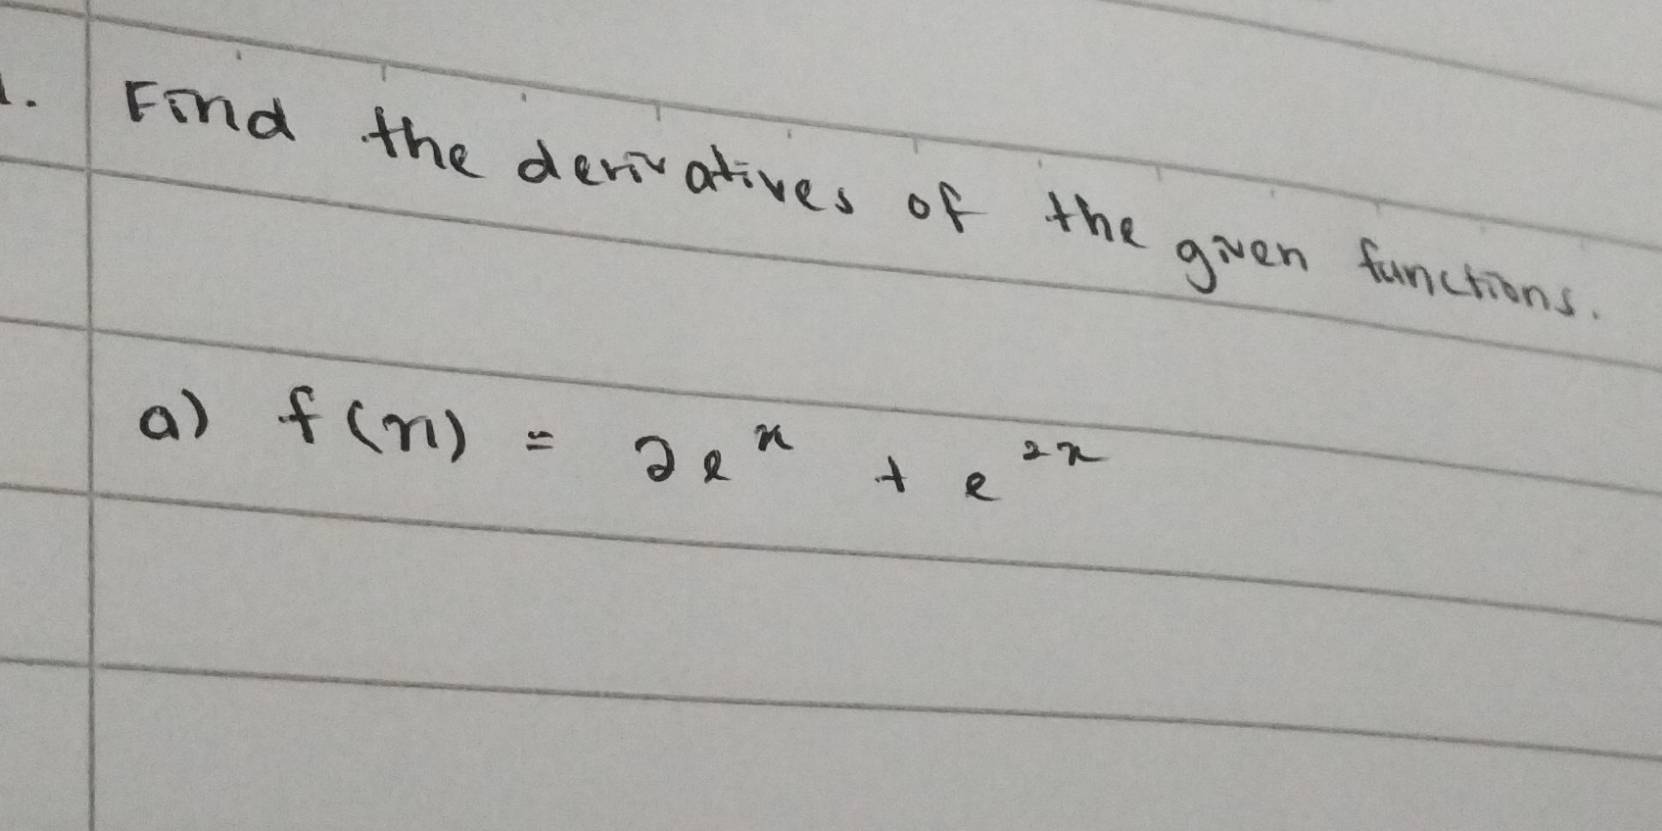 1. Find the derivatives of the given functions.
a) f(x) = 2e^x + e^2x